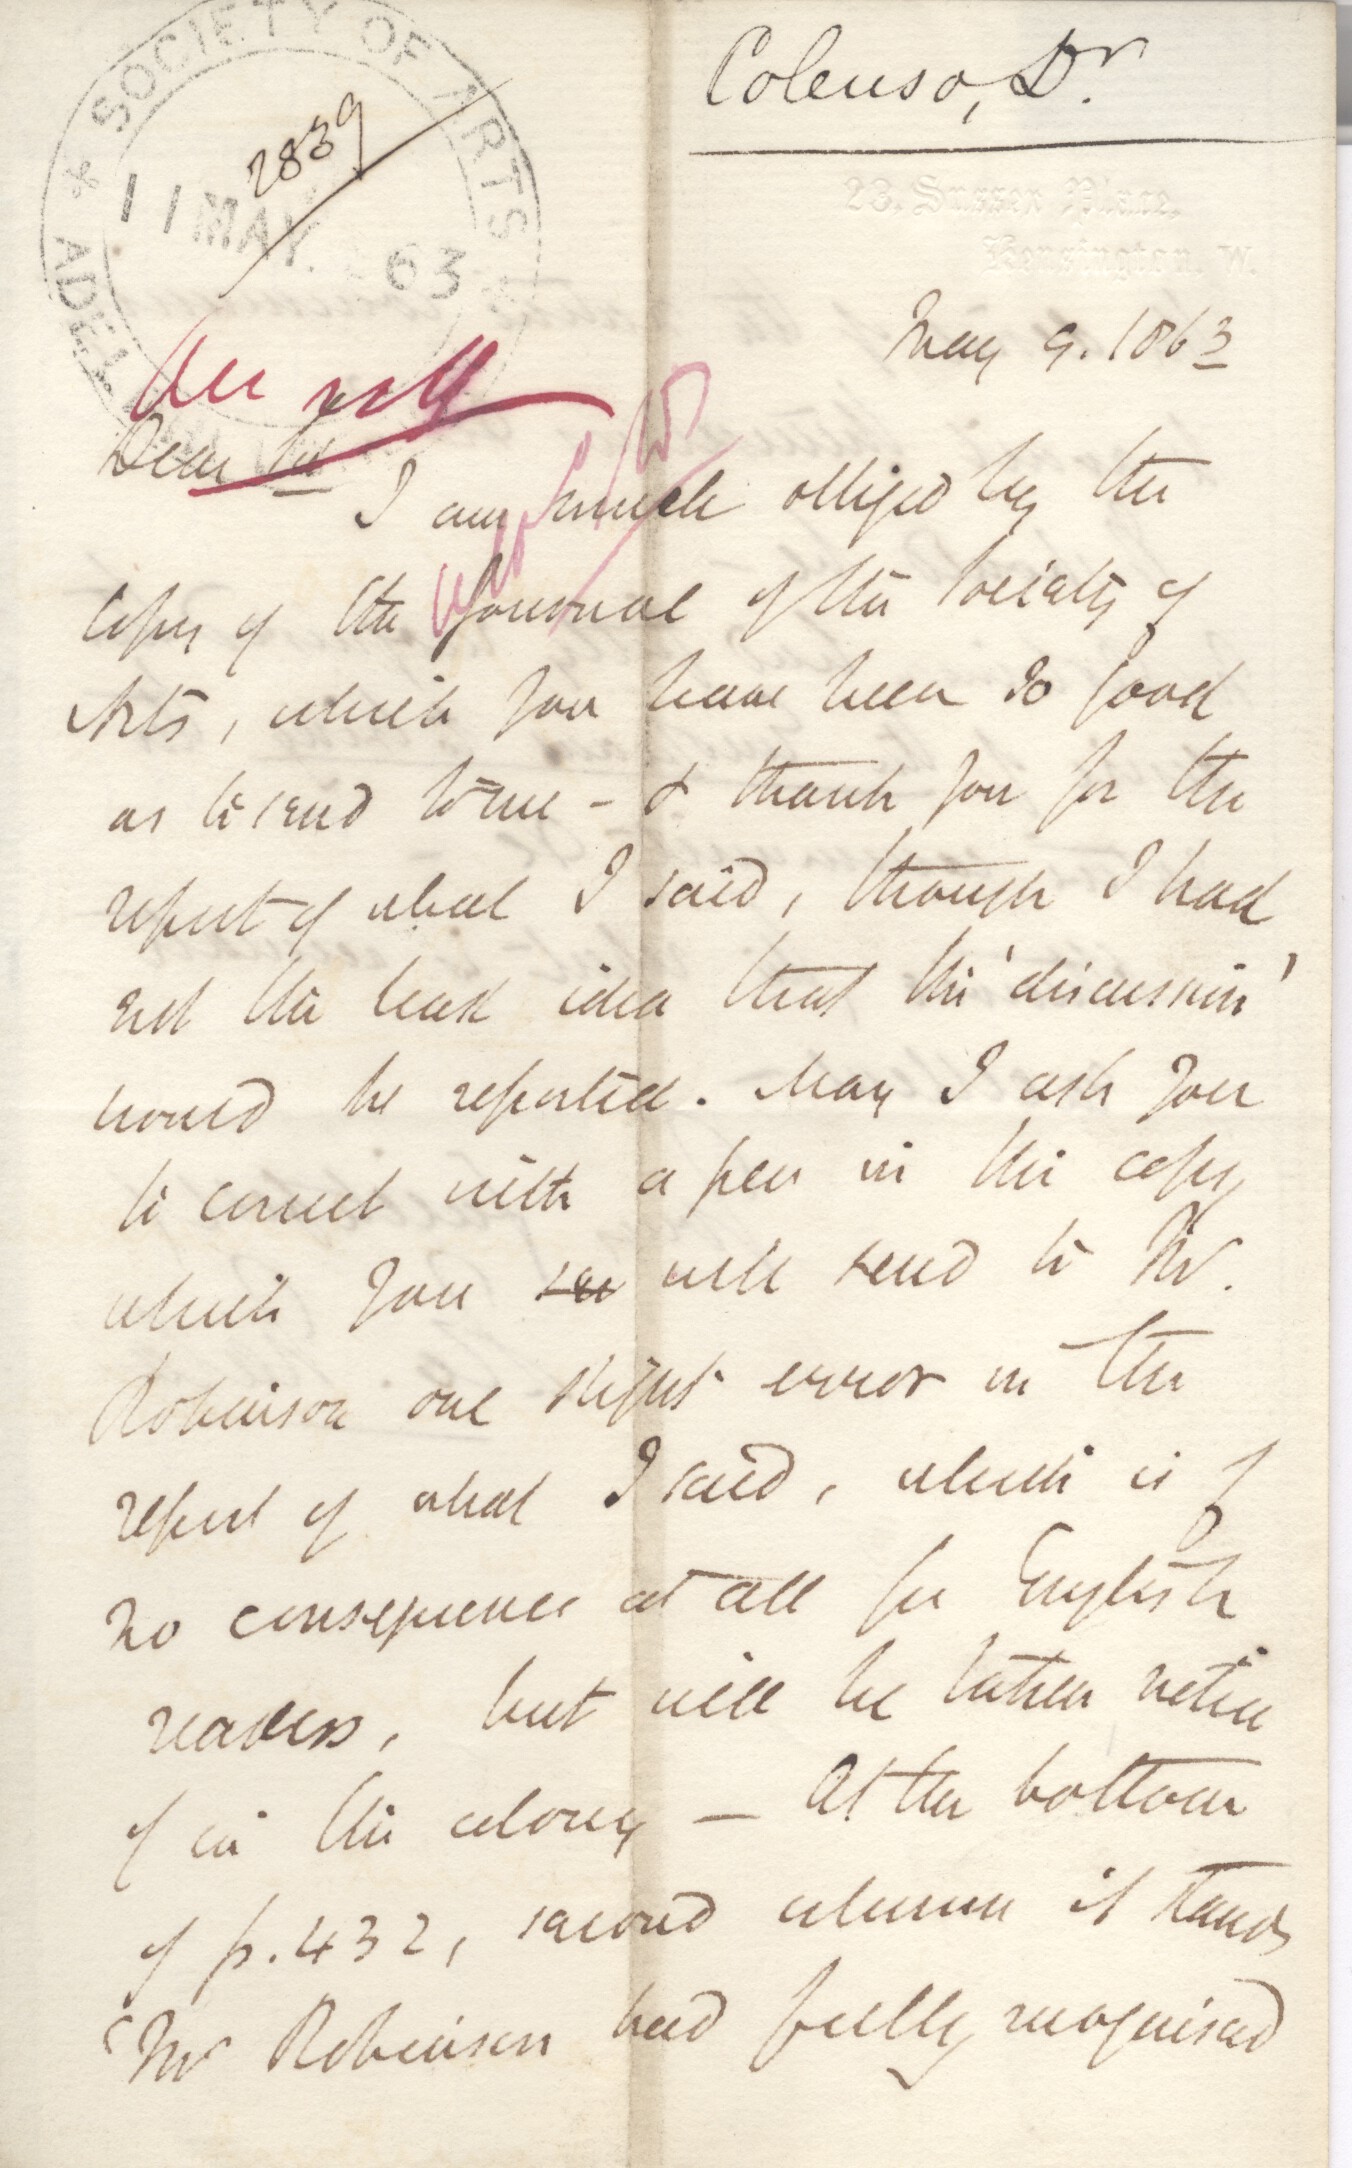 Colenso, Dr.
SOCIETY OF ARTS
ADEL
2839
11 MAY. 63
23. Sussex Place,
Kensington W.
May 9. 1863
Dear Sir
I am much obliged by the
copy of the Journal of the Society of
Arts, which you have been so good
as to send to me - & thank you for the
report of what I said, though I had
not the least idea that the 'discussion'
would be reported. May I ask you
to correct with a pen in the copy
which you will send to Mr.
Robinson one slight error in the
report of what I said, which is of
no consequence at all for English
readers, but will be taken notice
of in the colony — At the bottom
of p. 432, second column it stands
'Mr Robinson had fully recognised